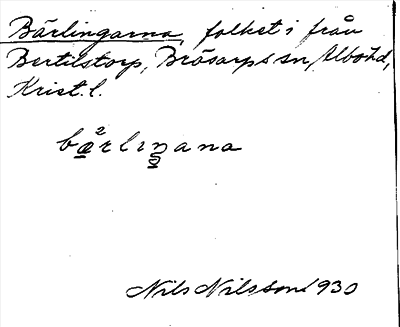 Bärlingarna, folket i från
Bertilstorp, Brösarps sn, Albo hd,
Krist. l.
bæ²rlıŋana
Nils Nilsson 1930